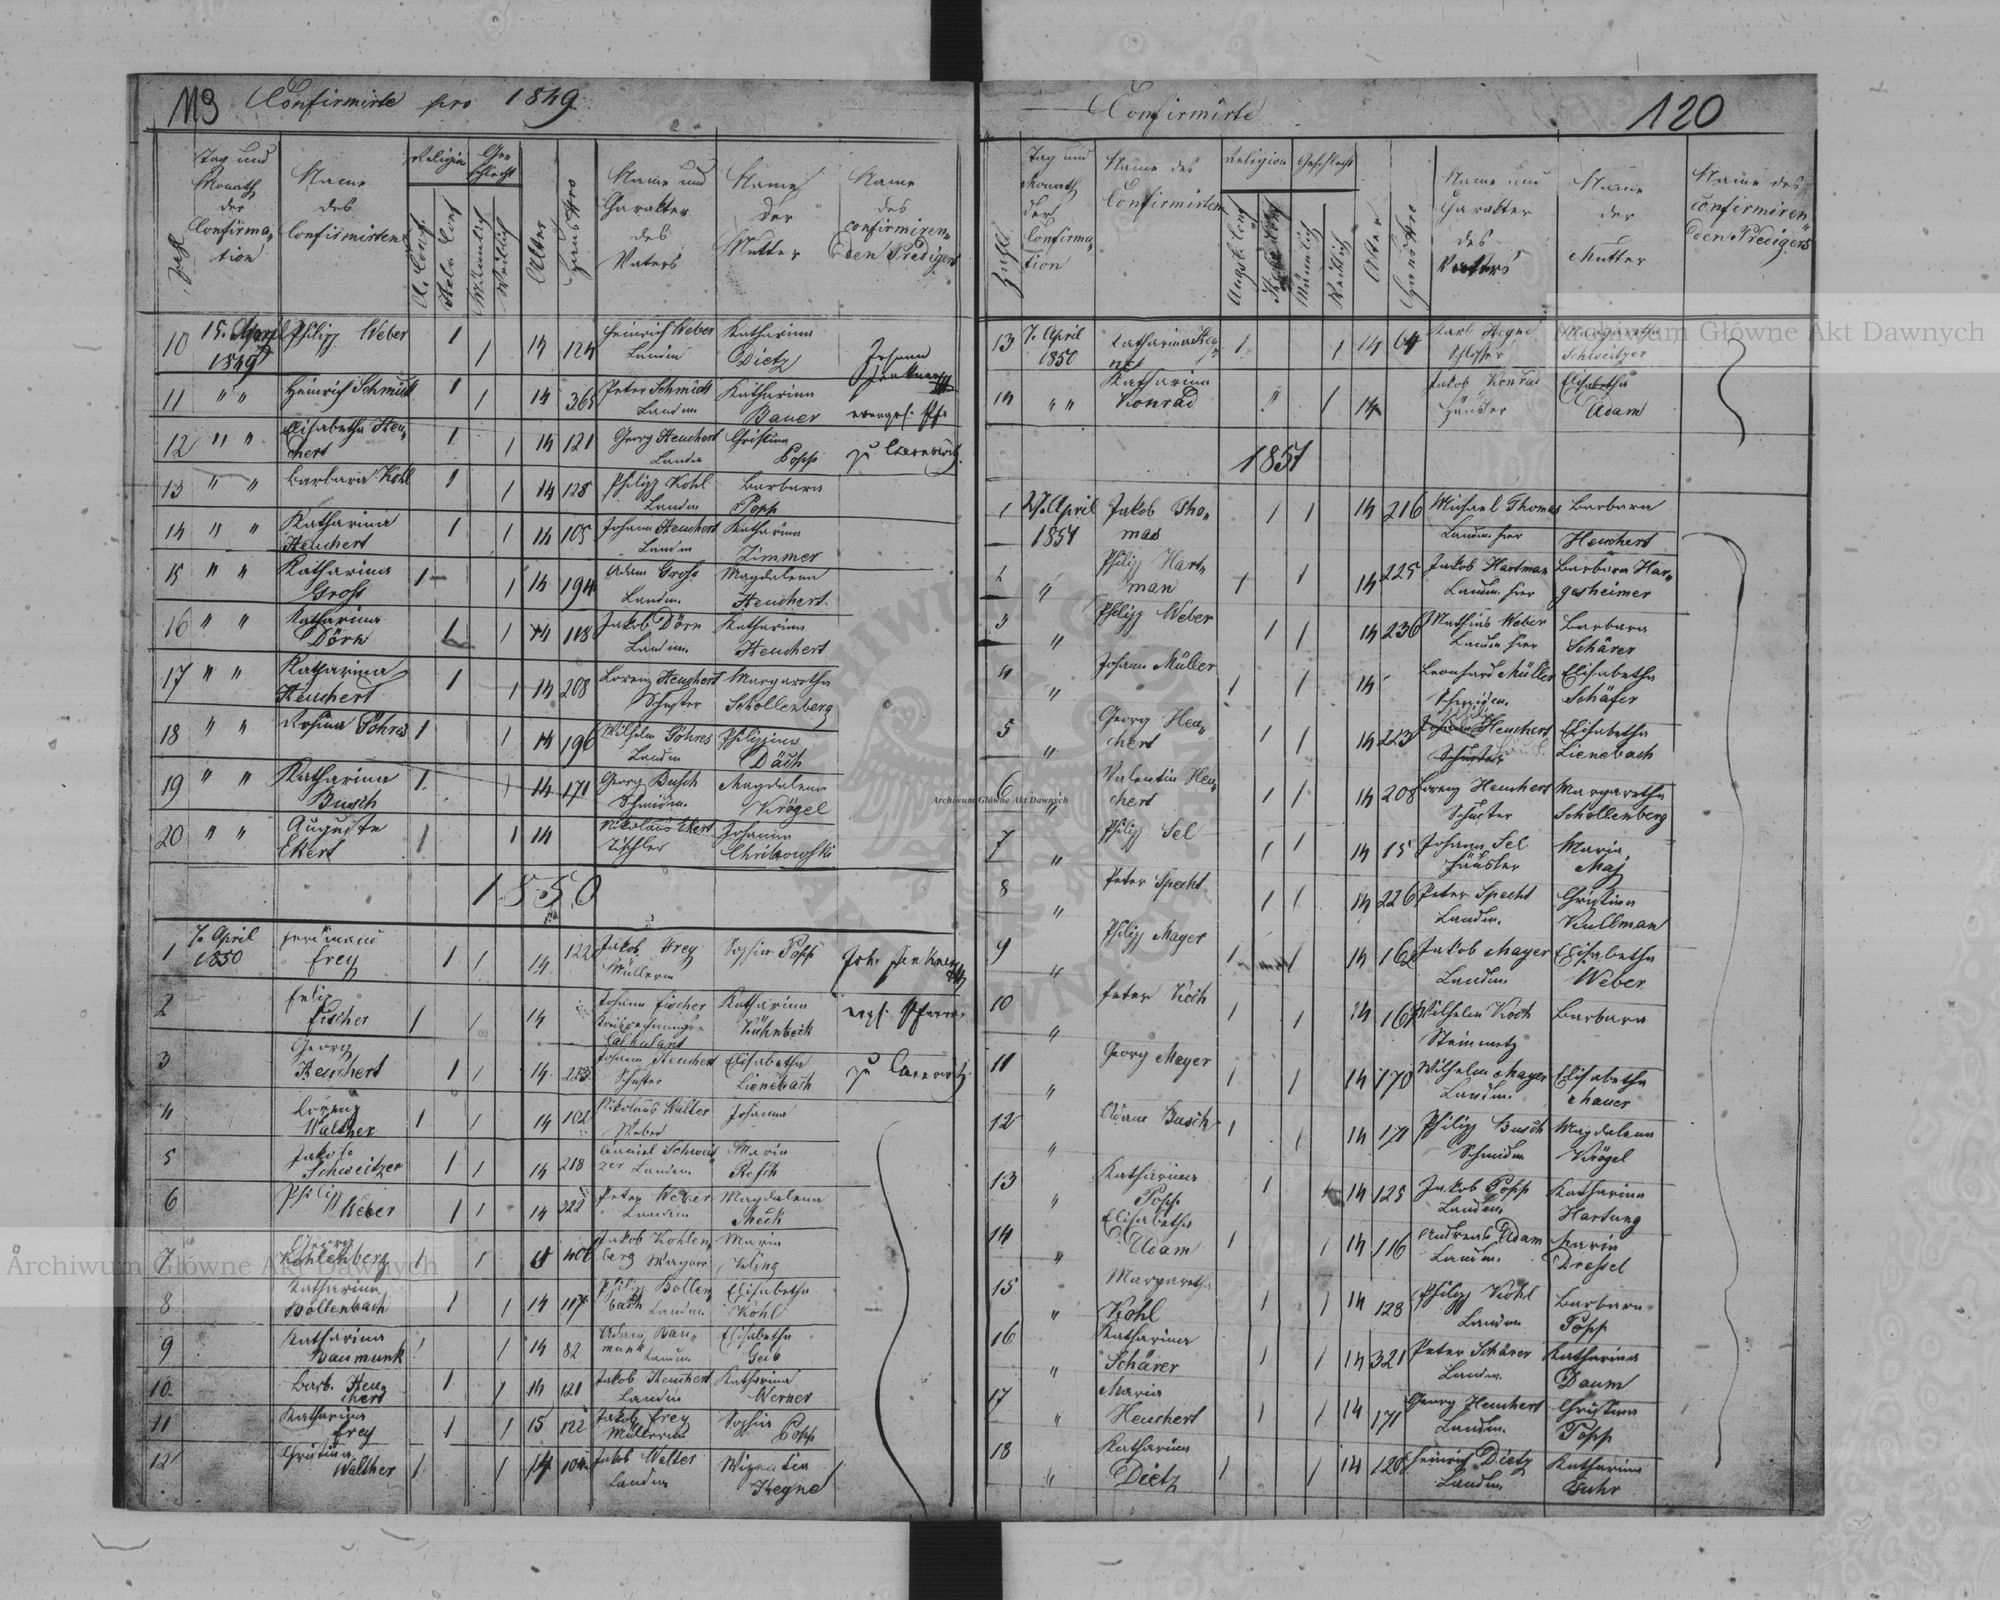 119 Confirmirte pro 1849
Tag und Monath der Confirmation
Name des Confirmirten
Religion
Geschlecht
A. Conf.
Helv. Conf
Männlich
Weiblich
Alter
Haus Nro
Name und Charakter des Vaters
Name der Mutter
Name des confirmirenden Predigers
10 15. April 1849 Philipp Weber 1 1 14 124 Heinrich Weber Landm Katharina Dietz Johann
11 " " Heinrich Schmidt 1 1 14 365 Peter Schmidt Landm Katharina Bauer evangel. Pfr
12 " " Elisabetha Heuchert 1 1 14 121 Georg Heuchert Landm Christina Popp zu Czernowitz
13 " " Barbara Kohl 1 1 14 128 Philipp Kohl Landm Barbara Popp
14 " " Katharina Heuchert 1 1 14 105 Johann Heuchert Landm Katharina Zimmer
15 " " Katharina Gross 1 1 14 194 Adam Gross Landm. Magdalena Heuchert
16 " " Katharina Dörn 1 1 14 118 Jakob Dörn Landm. Katharina Heuchert
17 " " Katharina Heuchert 1 1 14 208 Lorenz Heuchert Schuster Margaretha Schollenberg
18 " " Rosina Göhres 1 1 14 196 Wilhelm Göhres Landm Philippina Däuth
19 " " Katharina Busch 1 1 14 171 Georg Busch Schmidm. Magdalena Krögel
20 " " Auguste Ekert 1 1 14 Nikolaus Ekert Tischler Johanna
1850
1 7. April 1850 Ferdinand Frey 1 1 14 122 Jakob Frey Müllerm Sophia Popp Joh.
2 Felix Fischer 1 1 14 Johann Fischer Calkulant Katharina Kühnbeck evgl. Pfarrer
3 Georg Heuchert 1 1 14 223 Johann Heuchert Schuster Elisabetha Lienebach zu Czernowitz
4 Lorenz Walther 1 1 14 102 Nikolaus Walter Weber Johanna
5 Jakob Schweitzer 1 1 14 218 Daniel Schweitzer Landm. Maria
6 Philipp Weber 1 1 14 322 Peter Weber Landm Magdalena
7 Georg Kohlenberg 1 1 Jakob Kohlenberg Wagner Maria
8 Katharina Bollenbach 1 1 14 107 Philipp Bollenbach Landm. Elisabetha Kohl
9 Katharina Baumunk 1 1 14 82 Adam Baumunk Landm Elisabetha Geib
10 Barb. Heuchert 1 1 14 121 Jakob Heuchert Landm Katharina Werner
11 Katharina Frey 1 1 15 122 Jakob Frey Müllerm Sophia Popp
12 Christina Walther 1 1 14 104 Jakob Walter Landm Hegne
Confirmirte 120
Zahl
Tag und Monath der Confirmation
Name des Confirmirten
Religion
Geschlecht
Augsb. Conf
Helv. Conf
Männlich
Weiblich
Alter
Haus Nro
Name und Charakter des Vaters
Name der Mutter
Name des confirmirenden Predigers
13 7. April 1850 Katharina Hegne 1 1 14 64 Karl Hegne Schlosser Margaretha Schweitzer
14 " " Katharina Konrad " 1 14 Jakob Konrad Häusler Elisabetha Adam
1851
1 27. April 1851 Jakob Thomas 1 1 14 216 Michael Thomas Landm. hier Barbara Heuchert
2 " Philipp Hartman 1 1 14 225 Jakob Hartman Landm. hier Barbara Hargesheimer
3 " Philipp Weber 1 1 14 236 Mathias Weber Landm hier Barbara Schärer
4 " Johann Müller 1 1 14 Leonhard Müller Elisabetha Schäfer
5 " Georg Heuchert 1 1 14 223 Heuchert Elisabetha Lienebach
6 " Valentin Heuchert 1 1 14 208 Lorenz Heuchert Schuster Margaretha Schollenberg
7 " Philipp Sel 1 1 14 15 Johann Sel Häusler Maria Maj
8 " Peter Specht 1 1 14 226 Peter Specht Landm. Christina Kullman
9 " Philipp Mayer 1 1 14 162 Jakob Mayer Landm. Elisabetha Weber
10 " Peter Koch 1 1 14 Wilhelm Koch Steinmetz Barbara
11 " Georg Mayer 1 1 14 170 Wilhelm Mayer Landm. Elisabetha Mauer
12 " Adam Busch 1 1 14 171 Philipp Busch Schmidm Magdalena Krögel
13 " Katharina Popp 1 1 14 125 Jakob Popp Landm. Katharina Hartung
14 " Elisabetha Adam 1 1 14 116 Andreas Adam Landm. Maria Dressel
15 " Margaretha Kohl 1 1 14 128 Philipp Kohl Landm Barbara Popp
16 " Katharina Schärer 1 1 14 321 Peter Schärer Landm Katharina Daum
17 " Maria Heuchert 1 1 14 171 Georg Heuchert Landm. Christina Popp
18 " Katharina Dietz 1 1 14 120 Heinrich Dietz Landm. Katharina Buhr
Archiwum Główne Akt Dawnych
Archiwum Główne Akt Dawnych
Archiwum Główne Akt Dawnych